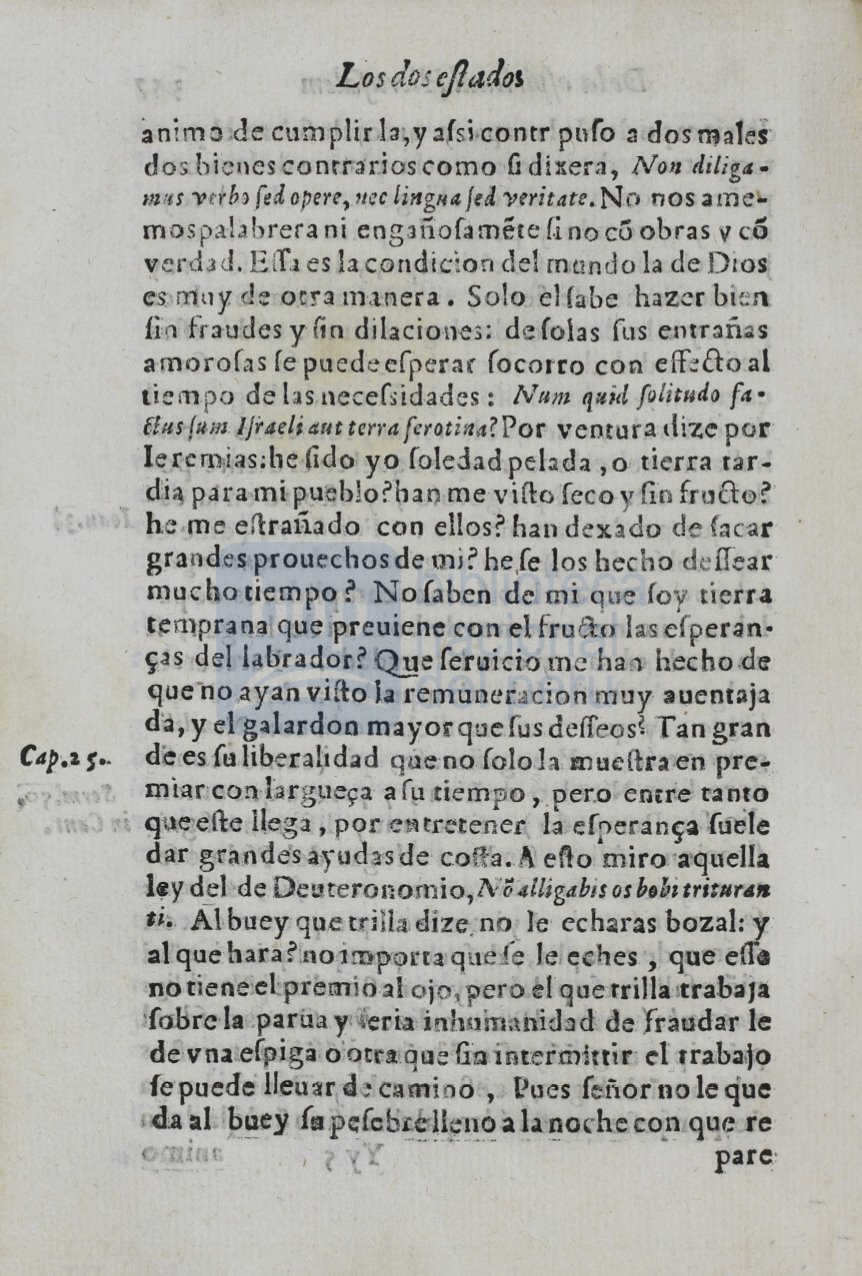 Los dos eſtados
animo de cumplir la, y aſsi contr puſo a dos males
dos bienes contrarios como ſi dixera, Non diliga-
mus verbo ſed opere, nec lingua ſed veritate. No nos ame-
mos palabrera ni engañoſamẽte ſi no cõ obras y cõ
verdad. Eſſa es la condicion del mundo la de Dios
es muy de otra manera. Solo el ſabe hazer bien
ſin fraudes y ſin dilaciones: de ſolas ſus entrañas
amoroſas ſe puede eſperar ſocorro con effecto al
tiempo de las neceſsidades: Num quid ſolitudo fa-
ctus ſum Iſraeli aut terra ſerotina? Por ventura dize por
Ieremias: he ſido yo ſoledad pelada, o tierra tar-
dia para mi pueblo? han me viſto ſeco y ſin fructo?
he me eſtrañado con ellos? han dexado de ſacar
grandes prouechos de mi? he ſe los hecho deſſear
mucho tiempo? No ſaben de mi que ſoy tierra
temprana que preuiene con el fructo las eſperan-
ças del labrador? Que ſeruicio me han hecho de
que no ayan viſto la remuneracion muy auentaja
da, y el galardon mayor que ſus deſſeos? Tan gran
Cap. 25. de es ſu liberalidad que no ſolo la mueſtra en pre-
miar con largueça a ſu tiempo, pero entre tanto
que eſte llega, por entretener la eſperança ſuele
dar grandes ayudas de coſta. A eſto miro aquella
ley del de Deuteronomio, Nõ alligabis os bobi trituran
ti. Al buey que trilla dize no le echaras bozal: y
al que hara? no importa que ſe le eches, que eſſe
no tiene el premio al ojo, pero el que trilla trabaja
ſobre la parua y ſeria inhumanidad de fraudar le
de vna eſpiga o otra que ſin intermittir el trabajo
ſe puede lleuar de camino, Pues ſeñor no le que
da al buey ſu peſebre lleno a la noche con que re
pare